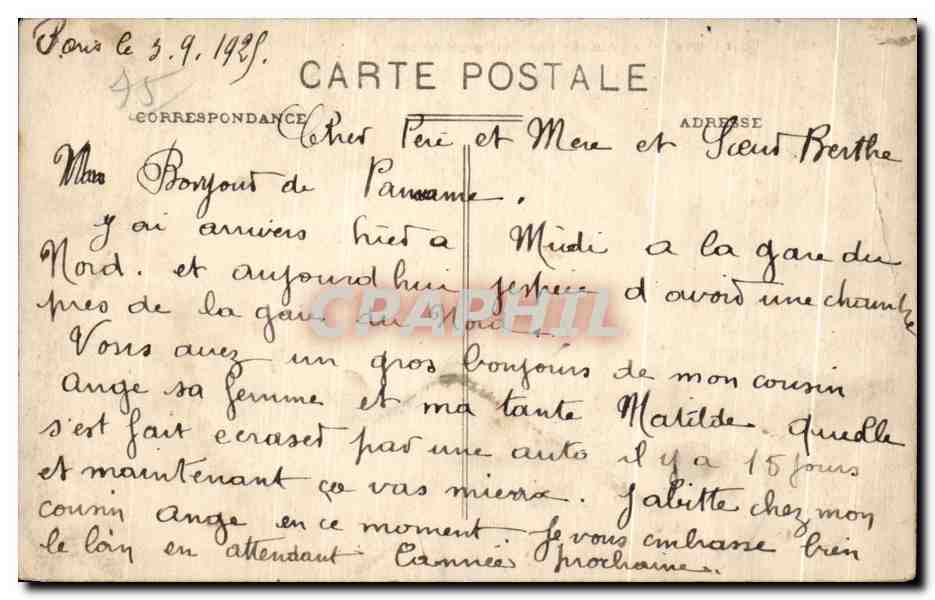 Paris le 3.9.1925.
45
CARTE POSTALE
CORRESPONDANCE
ADRESSE
Cher Pere et Mere et Soeur Berthe
Bonjour de Paname.
y ai arrivers hier a Midi a la gare du
Nord. et aujourd hui jespere d'avoir une chambre
pres de la gare du Nord.
CPAPHIL
Vous avez un gros bonjours de mon cousin
Ange sa femme et ma tante Matilde. quelle
s'est fait ecraser par une auto il y a 15 jours
et maintenant ça vas mieux. J abitte chez mon
cousin Ange en ce moment. Je vous embrasse bien
le loin en attendant L'année prochaine.